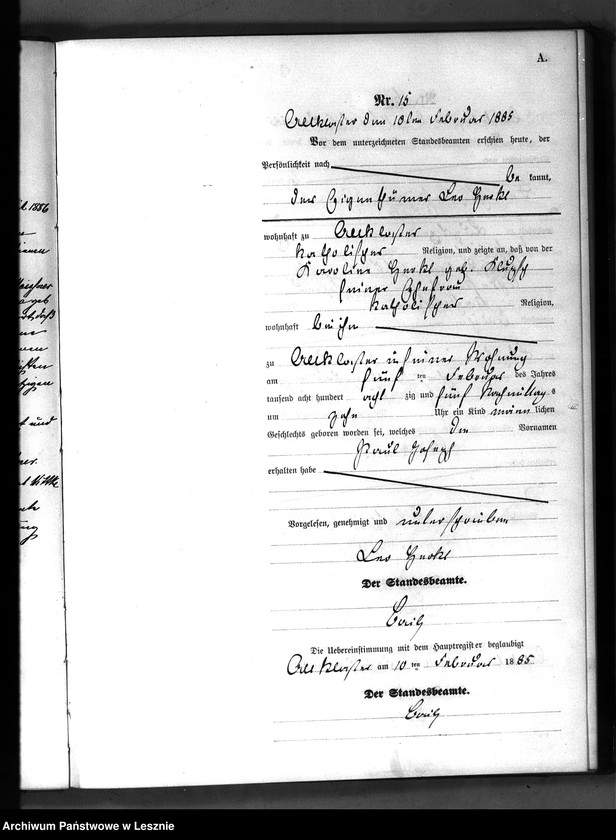 A.
Nr. 15
Altkloster den 10ten Februar 1885
Vor dem unterzeichneten Standesbeamten erschien heute, der
Persönlichkeit nach be kannt,
der Eigenthümer Leo
wohnhaft zu Altkloster
katholischer Religion, und zeigte an, daß von der
Karoline geb.
seiner Ehefrau
katholischer Religion,
wohnhaft bei ihm
zu Altkloster in seiner Wohnung
am fünf ten Februar des Jahres
tausend acht hundert acht zig und fünf Nachmittag s
um zehn Uhr ein Kind männ lichen
Geschlechts geboren worden sei, welches die Vornamen
Paul Joseph
erhalten habe
Vorgelesen, genehmigt und unterschrieben
Leo
Der Standesbeamte.
Die Uebereinstimmung mit dem Hauptregister beglaubigt
Altkloster am 10 ten Februar 1885
Der Standesbeamte.
1886
und
Archiwum Państwowe w Lesznie